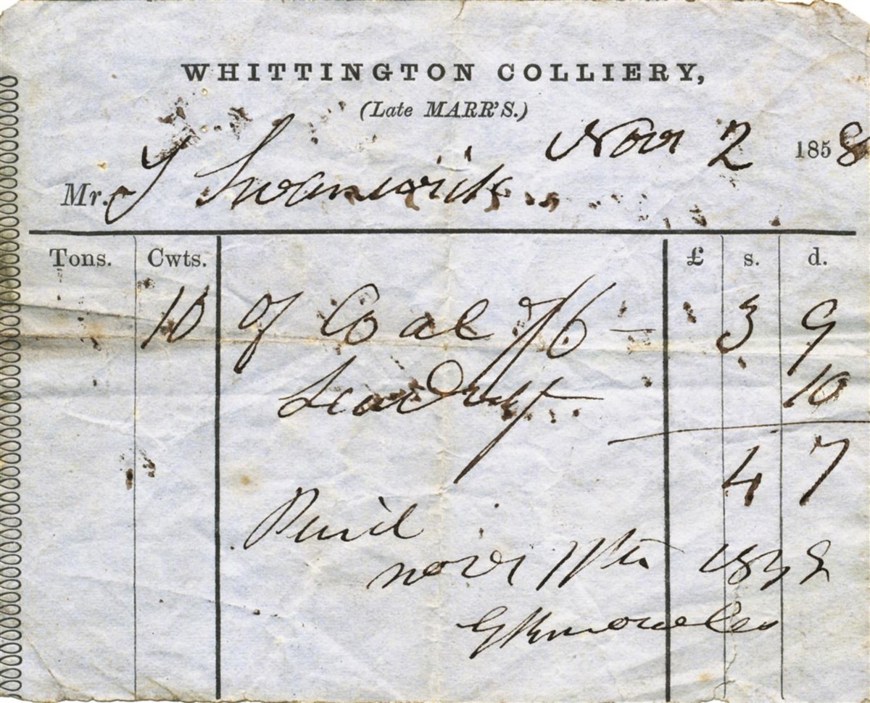 WHITTINGTON COLLIERY,
(Late MARR'S.)
Nov 2 1858
Mr. J Swanwick
Tons. Cwts. £ s. d.
10 of Coal 7/6 — 3 9
Leading 10
4 7
Paid
Nov 11th 1858
G Knowles